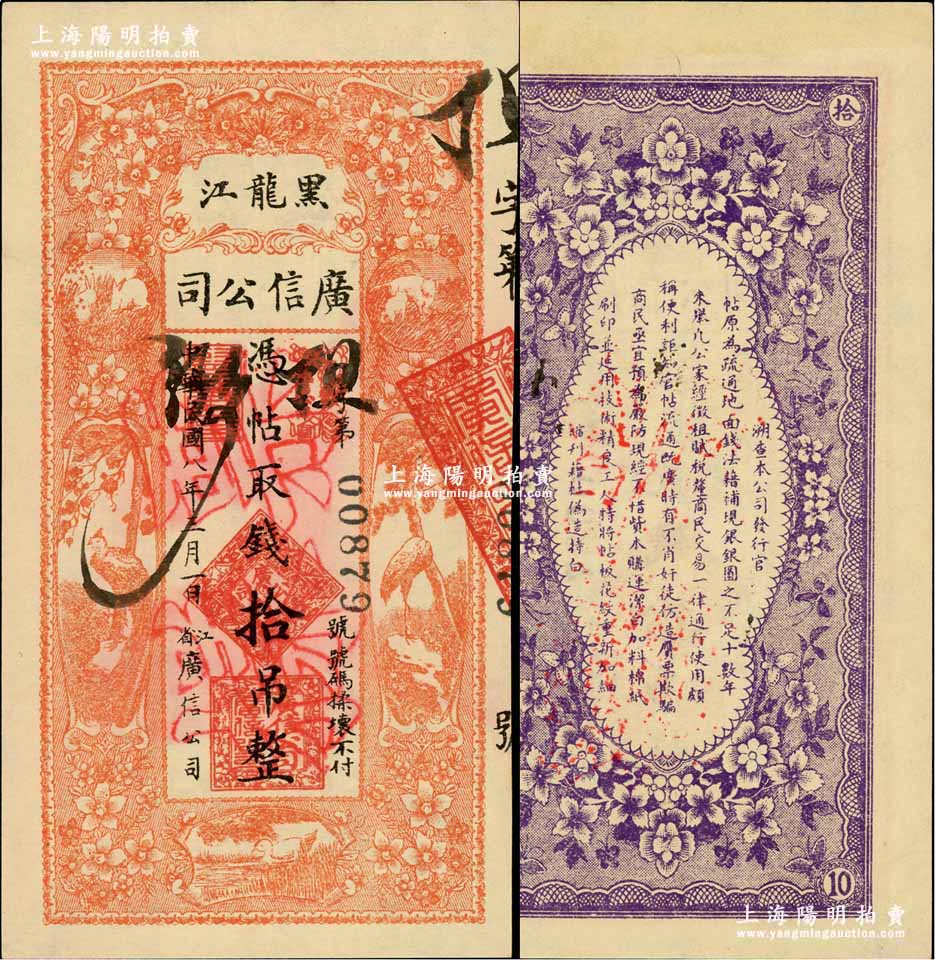 上海陽明拍賣
www.yangmingauction.com
黑龍江
廣信公司
字第
00879
號號碼揉壞不付
憑帖取錢拾吊整
中華民國八年一月一日
江省廣信公司
字第
號
上海陽明拍賣
www.yangmingauction.com
拾
溯查本公司發行官
帖原為疏通地面錢法藉補現銀銀圓之不足十數年
來舉凡公家經徵租賦稅釐商民交易一律通行使用頗
稱便利詎知官帖流通既廣時有不肖奸徒仿造贋票欺騙
商民亟宜預為嚴防現經不惜貲本購運潔白加料棉紙
刷印並延用技術精良工人特將帖板花紋重新加細
縮刋藉杜偽造特白
10
上海陽明拍賣
www.yangmingauction.com